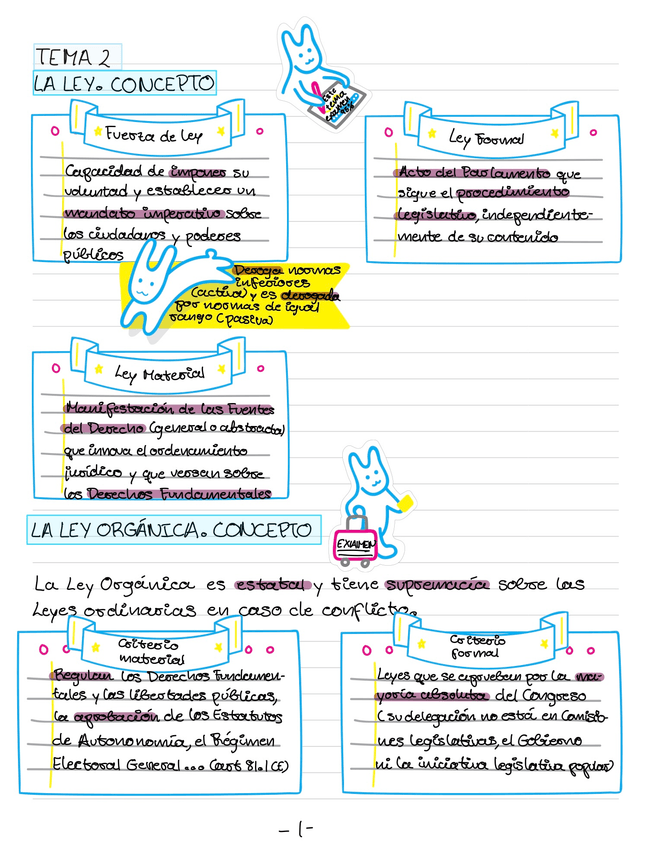 TEMA 2
LA LEY. CONCEPTO
Fuerza de Ley
Capacidad de imponer su
voluntad y establecer un
mandato imperativo sobre
los ciudadanos y poderes
públicos
Ley Formal
Acto del Parlamento que
sigue el procedimiento
legislativo, independiente-
mente de su contenido
Deroga normas
inferiores
(activa) y es derogada
por normas de igual
rango (pasiva)
Ley Material
Manifestación de las Fuentes
del Derecho (general o abstracta)
que innova el ordenamiento
jurídico y que versan sobre
los Derechos Fundamentales
LA LEY ORGÁNICA. CONCEPTO
EXAMEN
La Ley Orgánica es estatal y tiene supremacía sobre las
Leyes ordinarias en caso de conflicto.
Criterio
material
Regulan los Derechos Fundamen-
tales y las libertades públicas,
la aprobación de los Estatutos
de Autononomía, el Régimen
Electoral General... (art 81.1 CE)
Criterio
formal
Leyes que se aprueban por la ma-
yoría absoluta del Congreso
(su delegación no está en Comisio-
nes legislativas, el Gobierno
ni la iniciativa legislativa popular)
-1-